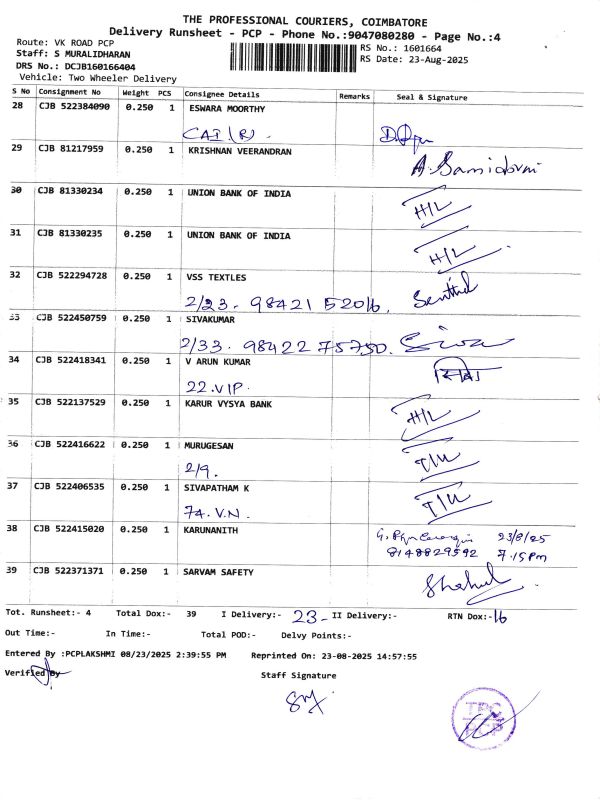 THE PROFESSIONAL COURIERS, COIMBATORE
Delivery Runsheet - PCP - Phone No.:9047080280 - Page No.:4
Route: VK ROAD PCP
Staff: S MURALIDHARAN
DRS No.: DCJB160166404
Vehicle: Two Wheeler Delivery
RS No.: 1601664
RS Date: 23-Aug-2025
S No Consignment No Weight PCS Consignee Details Remarks Seal & Signature
28 CJB 522384090 0.250 1 ESWARA MOORTHY
CAI (R)
29 CJB 81217959 0.250 1 KRISHNAN VEERANDRAN
30 CJB 81330234 0.250 1 UNION BANK OF INDIA H/L
31 CJB 81330235 0.250 1 UNION BANK OF INDIA H/L
32 CJB 522294728 0.250 1 VSS TEXTLES Senthil
2/23. 98421 52016.
33 CJB 522450759 0.250 1 SIVAKUMAR
2/33. 98422 75750. Siva
34 CJB 522418341 0.250 1 V ARUN KUMAR
22.VIP.
35 CJB 522137529 0.250 1 KARUR VYSYA BANK H/L
36 CJB 522416622 0.250 1 MURUGESAN
2/9.
37 CJB 522406535 0.250 1 SIVAPATHAM K
74. V.N.
38 CJB 522415020 0.250 1 KARUNANITH 23/8/25
8148829592 7.15pm
39 CJB 522371371 0.250 1 SARVAM SAFETY Shahul
Tot. Runsheet:- 4 Total Dox:- 39 I Delivery:- 23 II Delivery:- RTN Dox:- 16
Out Time:- In Time:- Total POD:- Delvy Points:-
Entered By :PCPLAKSHMI 08/23/2025 2:39:55 PM Reprinted On: 23-08-2025 14:57:55
Verified By Staff Signature
TPC
PCP